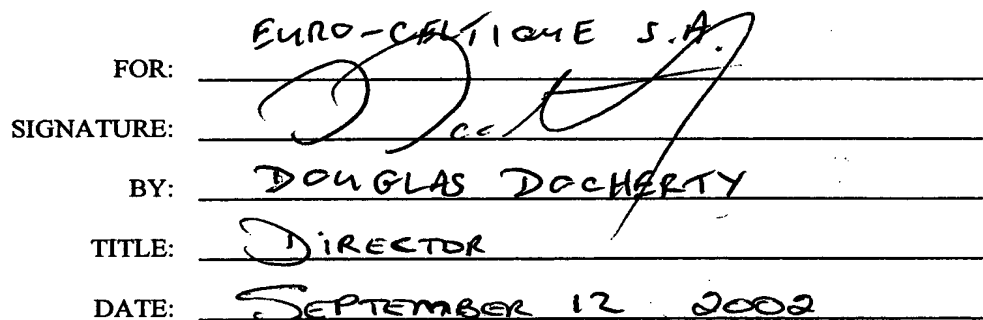 FOR: EURO-CELTIQUE S.A.
SIGNATURE:
BY: DOUGLAS DOCHERTY
TITLE: DIRECTOR
DATE: SEPTEMBER 12 2002